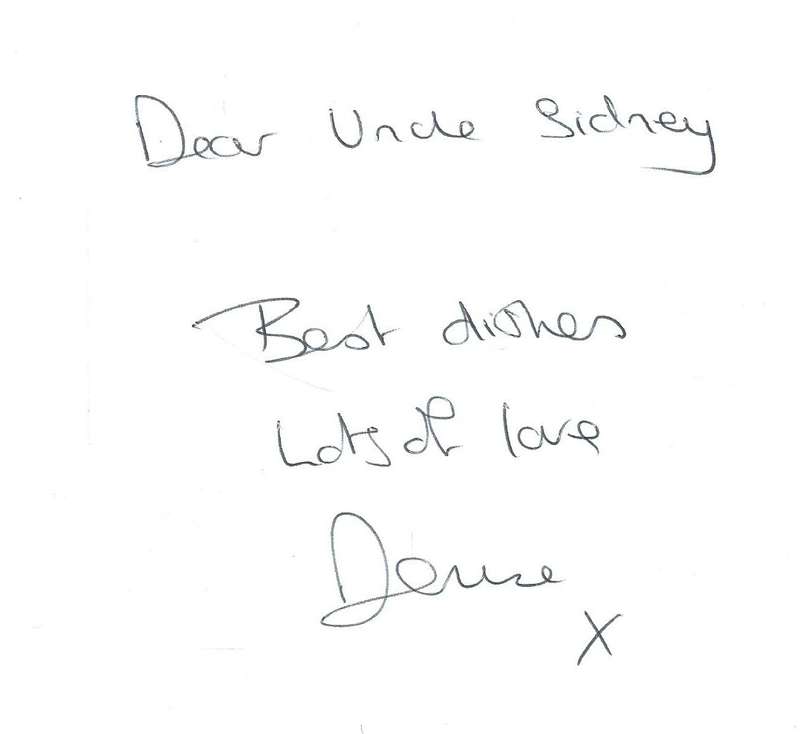 Dear Uncle Sidney
Best dishes
Lots of love
Denise
X